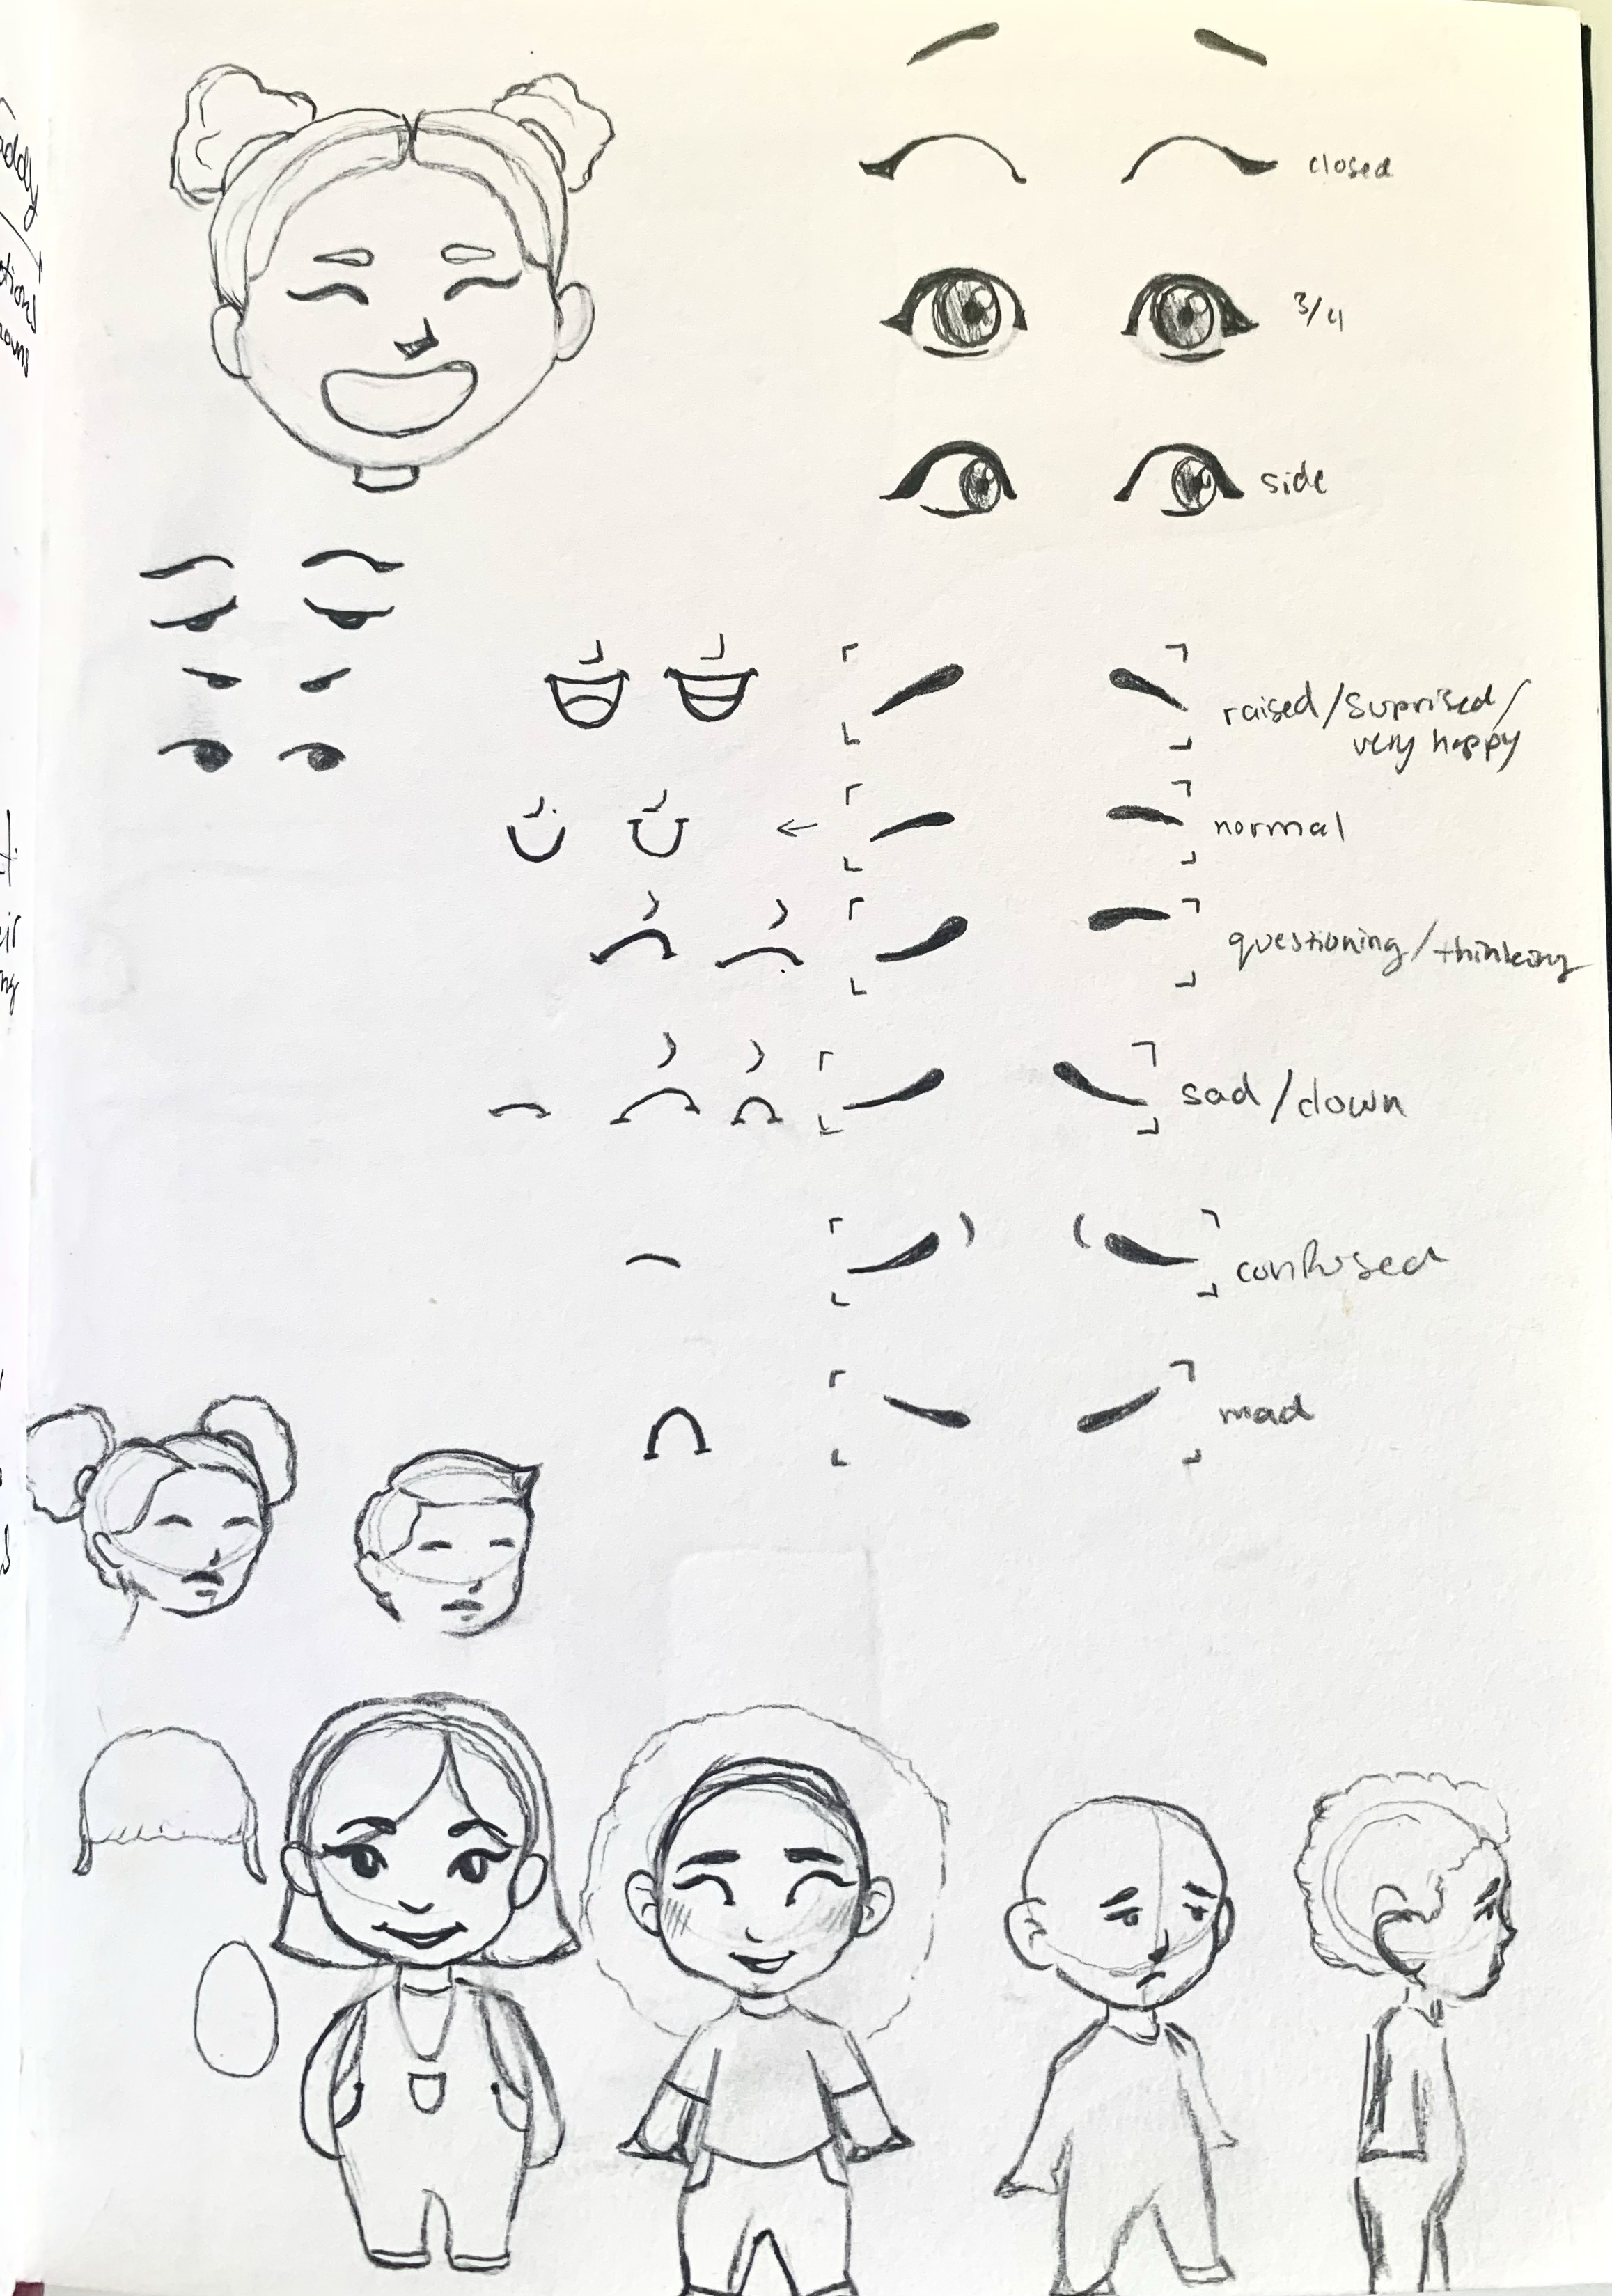 closed
3/4
side
raised/suprised/
very happy
normal
questioning/thinking
sad/down
confused
mad